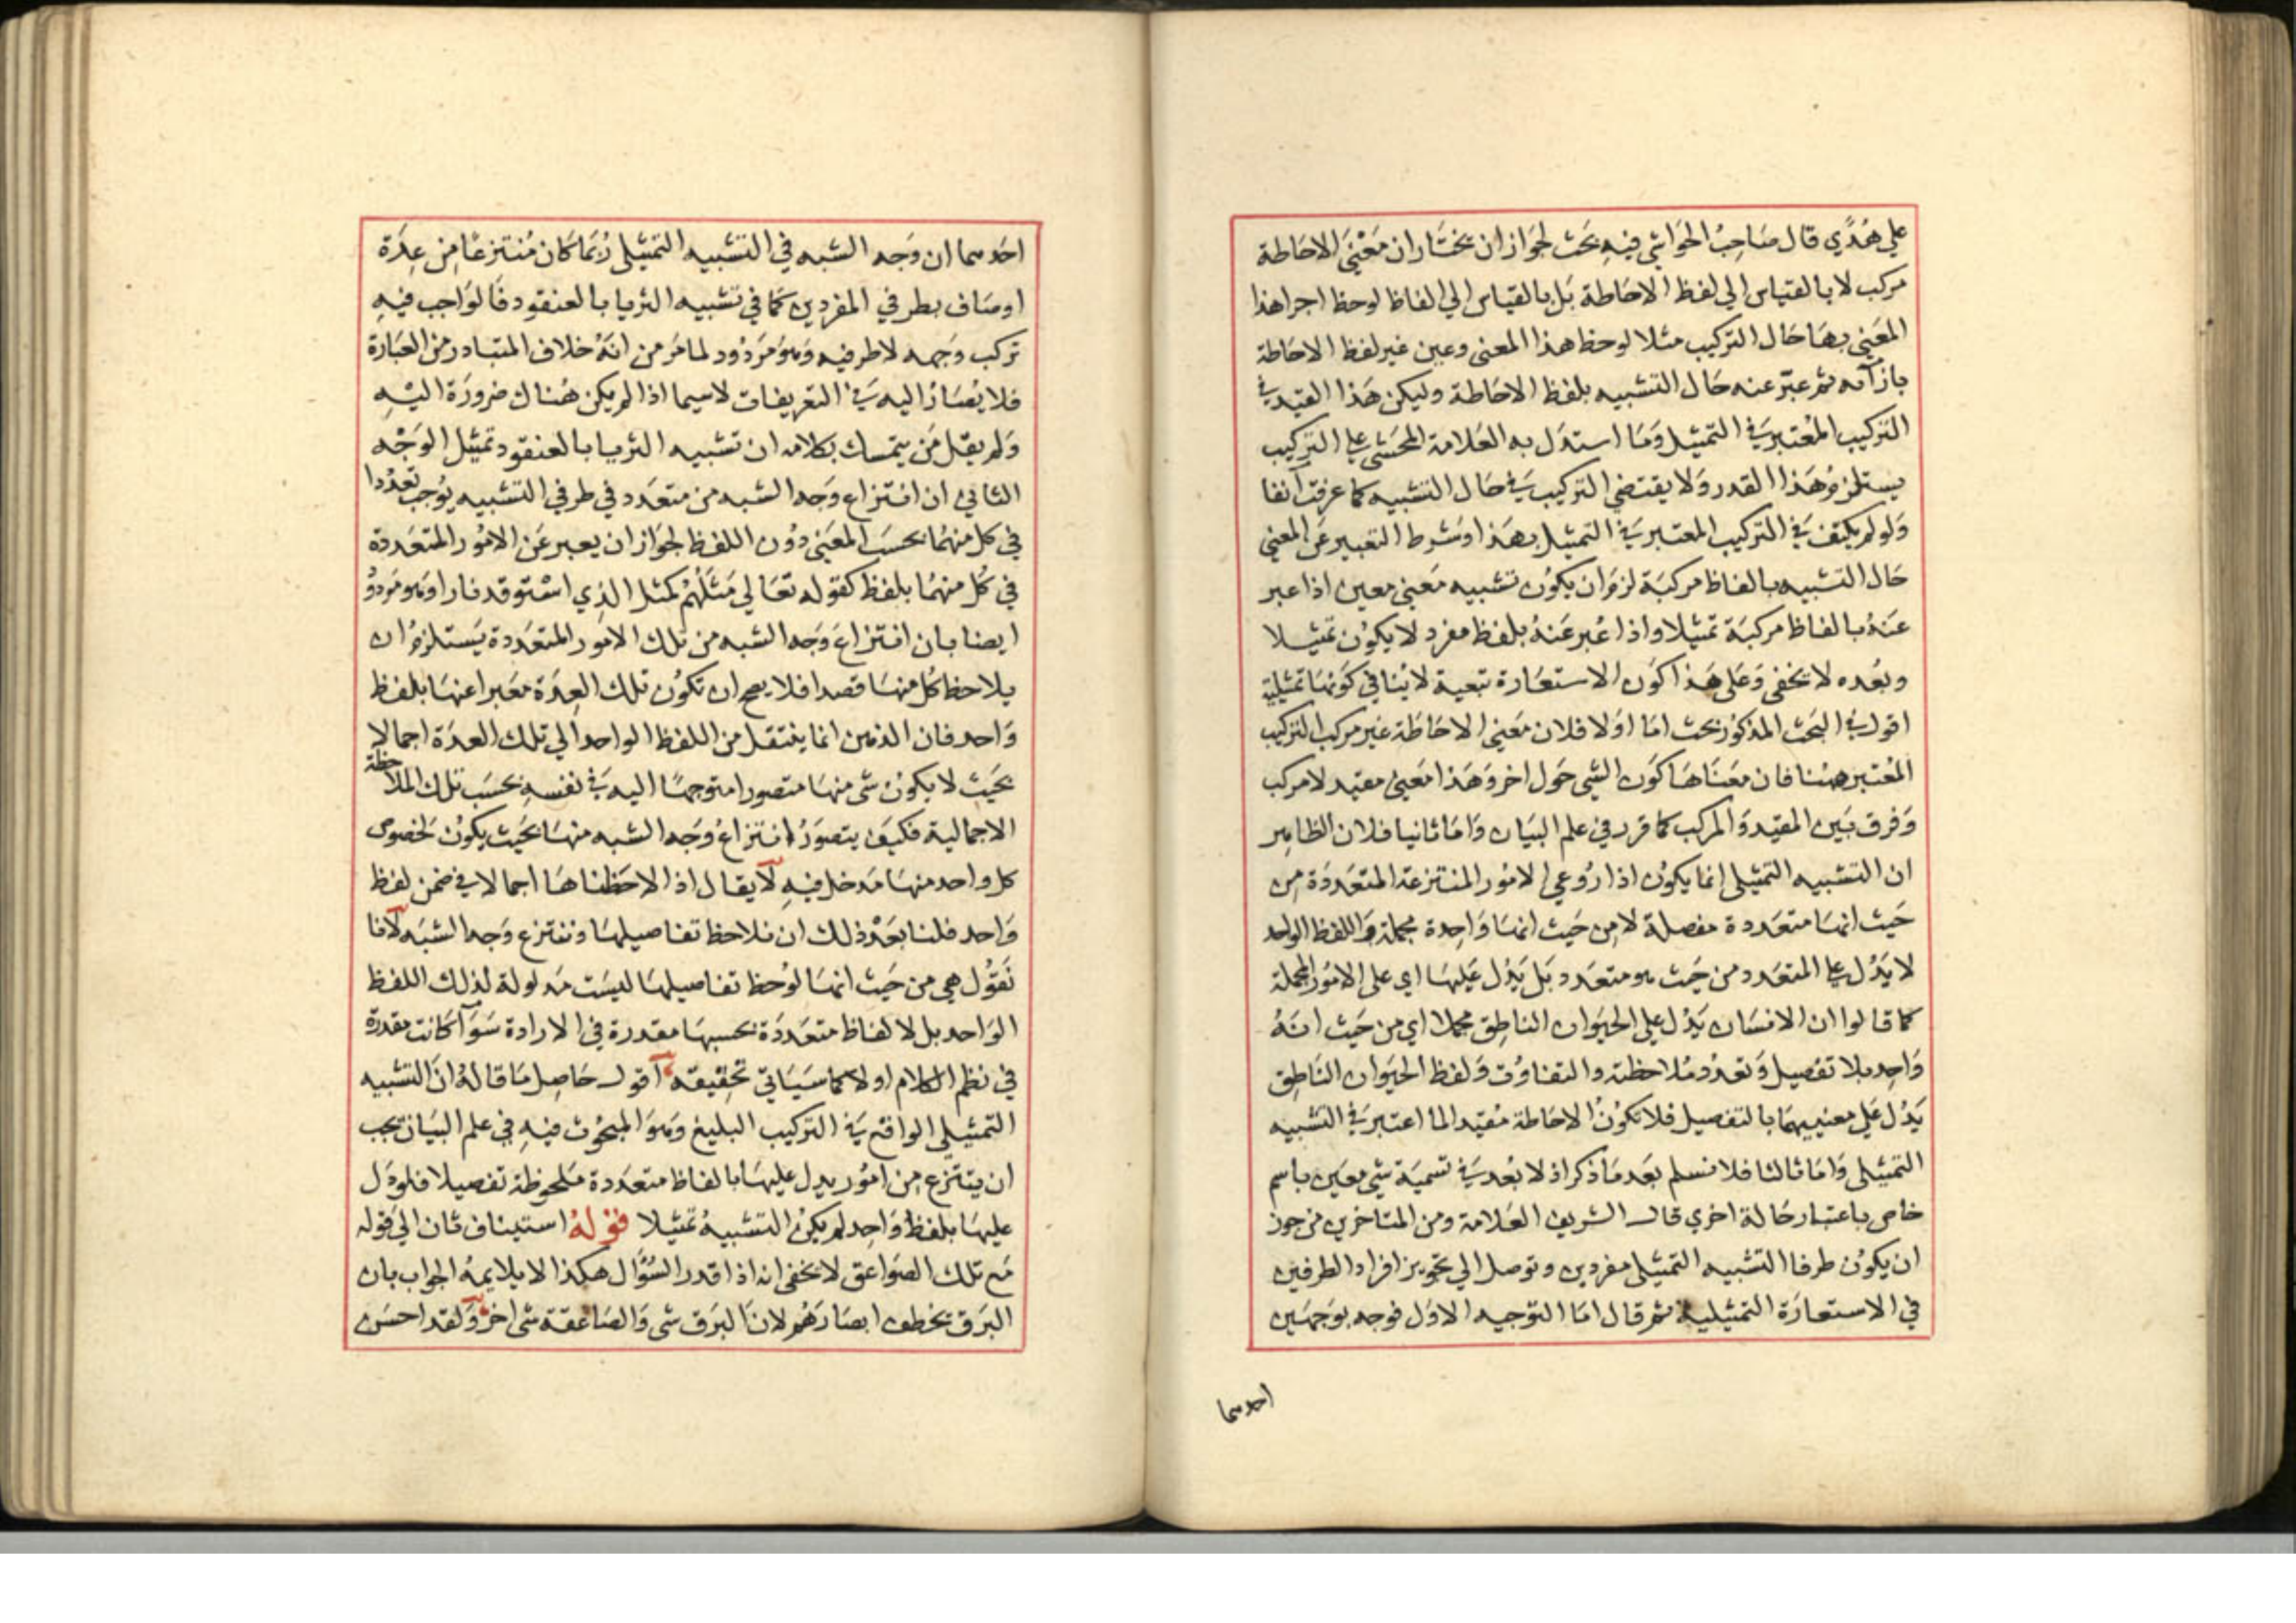 علي هُدًي قال صَاحِبُ الحَوَاشِي فيهِ بحَث لجوَاز ان يختَار ان مَعْنيَ الاحَاطة
مركب لا بالقياس الي لفظ الاحَاطة بَل بالقياس الي الفاظ لوحظ اجزا هذا
المعَني بهَا حَال التركيب مثلا لوحظ هذا المعني وعين غير لفظ الاحَاطة
بازآئه ثم عبّر عنه حَال التشبيه بلفظ الاحَاطة وليكن هَذا القيد في
التركيب المُعْتبر في التمثيل وَمَا استدَل به العَلامة المحَشي علي التركيب
يستلزمُ هَذا القدر وَلا يقتضي التركيب في حَال التشبيه كما عرفت آنفا
وَلو لم يكتف في التركيب المعتبر في التمثيل بهَذا وشرط التعبير عَن المعني
حَال التشبيه بالفاظ مركبَة لزمَ ان يكوُن تشبيه مَعني معين اذا عبر
عَنهُ بالفاظ مركبَة تمثيلا واذا عُبر عَنهُ بلفظ مفرد لا يكوُن تمثيلا
وبعُده لا يخفي وَعَلي هَذا كوَن الاستعَارة تبعية لا ينُافي كوَنهَا تمثيلية
اقول في البَحث المذكوُر بحث امَا اوَلا فلان مَعني الاحَاطَة غير مركب التركيب
المُعْتبر ههُنا فان معَنَاهَا كوَن الشي حَول اخر وَهَذا مَعني مقيد لا مركب
وَفرق بَين المقيد وَالمركب كما قرر في علم البيَان وَامَا ثانيا فلان الظاهر
ان التشبيه التمثيلي انما يكوُن اذا رُوعي الامُور المنتزعة المتعَددَة مِن
حَيث انهَا متعَددة مفصلة لا مِن حَيث انهَا وَاحِدة مجملة وَاللفظ الواحد
لا يَدُل علي المتعَدد من حَيث هو متعَدد بَل يَدُل عَليهَا اي علي الامُور المجملة
كما قالوا ان الانسَان يَدُل علي الحيَوان الناطِق مجملا اي من حَيث انهُ
وَاحِد بلا تفصيل وَتعَدُد مُلاحظة والتفاوُت وَلفظ الحيَوان النَاطِق
يَدُل عَلي معنييهمَا بالتفصيل فلا تكوُنُ الاحَاطة مُفيَد الما اعتبر في التشبيه
التمثيلي وَامَا ثالثا فلا نسَلم بعَد مَا ذكر اذ لا بُعد في تسميَة شي معَين باسم
خاص باعتبار حَالة اخري قال الشريف العَلامة ومن المتاخرين من جوز
ان يكوُن طرفا التشبيه التمثيلي مفردين وتوصل الي تجويز افراد الطرفين
في الاستعارَة التمثيلية ثم قال امَا التوجيه الاوَل فوجه بوَجهَين
احدهما
احَدهما ان وَجَه الشبه في التشبيه التمثيلي رُبمَا كان مُنتزعًا مِن عِدَة
اوصَاف بطرفي المفردين كمَا في تشبيه الثريا بالعنقود فَالوَاجب فيهِ
تركب وَجهه لا طرفيه وَهوَ مَردُود لما مَر من انهُ خلاف المتبادر من العبَارة
فلا يصَار اليه في التعريفات لاسيما اذا لم يكن هُناك ضرورَة اليْهِ
وَلم يقل مَن يتمسك بكلامه ان تشبيه الثريا بالعنقود تمثيل الوَجْه
الثاني ان انتزاع وَجه الشبه من متعَدد في طرفي التشبيه يوُجب تعَدُدا
في كل منهُمَا بحسَب المعَني دوُن اللفظ لجوَاز ان يعبر عَن الامُور المتعَددة
في كُل منهُمَا بلفظ كقوله تعَالي مَثَلُهُم كمثل الذِي اسْتوقد نارا وَهو مَردُود
ايضا بان انتزاعَ وَجه الشبه من تلك الامور المتعَددة يَستلزمُ ان
يلاحظ كُل منهَا قصدا فلا يصح ان تكوُن تلك العِدَة معَبرا عنهَا بلفظ
وَاحد فان الذهن انما ينتقل من اللفظ الواحد الي تلك العدَة اجمالا
بحَيث لا يكوُن شي منهَا متصورا متوجهًا اليه في نفسهِ بحسَب تلك الملاحظة
الاجمالية فكيفَ يتصوَرُ انتزاعُ وَجه الشبه منهَا بحَيث يكوُن لخصوص
كل واحد منهَا مَدخل فيهِ لا يقال اذا لاحَظناهَا اجمالا في ضمن لفظ
وَاحد فلنا بعَدْ ذلك ان نلاحظ تفاصيلهَا وننتزع وَجه الشبَه لانا
نَقوُل هي من حَيث انهَا لوُحظ تفاصيلهَا ليسَت مَدلولة لذلك اللفظ
الوَاحد بل لالفاظ متعَددَة بحسبهَا مقدرة في الارادة سَوَآ كانت مقدرة
في نظم الكلام اولا كمَا سَيَاتي تحقيقه آقول حَاصِل مَا قالهُ ان التشبيه
التمثيلي الواقع في التركيب البليغ وَهوَ المبحُوث فيهِ في علم البيَان يجب
ان ينتزع مِن امُور يدل عليهَا بالفاظ متعَددة مَلحوظة تفصيلا فلو دَل
عليهَا بلفظ وَاحِد لم يكن التشبيهُ تمثيلا قوْلهُ استيناف ثان الي قوله
مَع تلك الصوَاعق لا يخفي انه اذا قدر السُؤَال هكذا لا يلايمهُ الجواب بان
البَرق يخطف ابصَارَهُم لان البَرق شي وَالصَاعقة شي اخر وَلقد احسَن